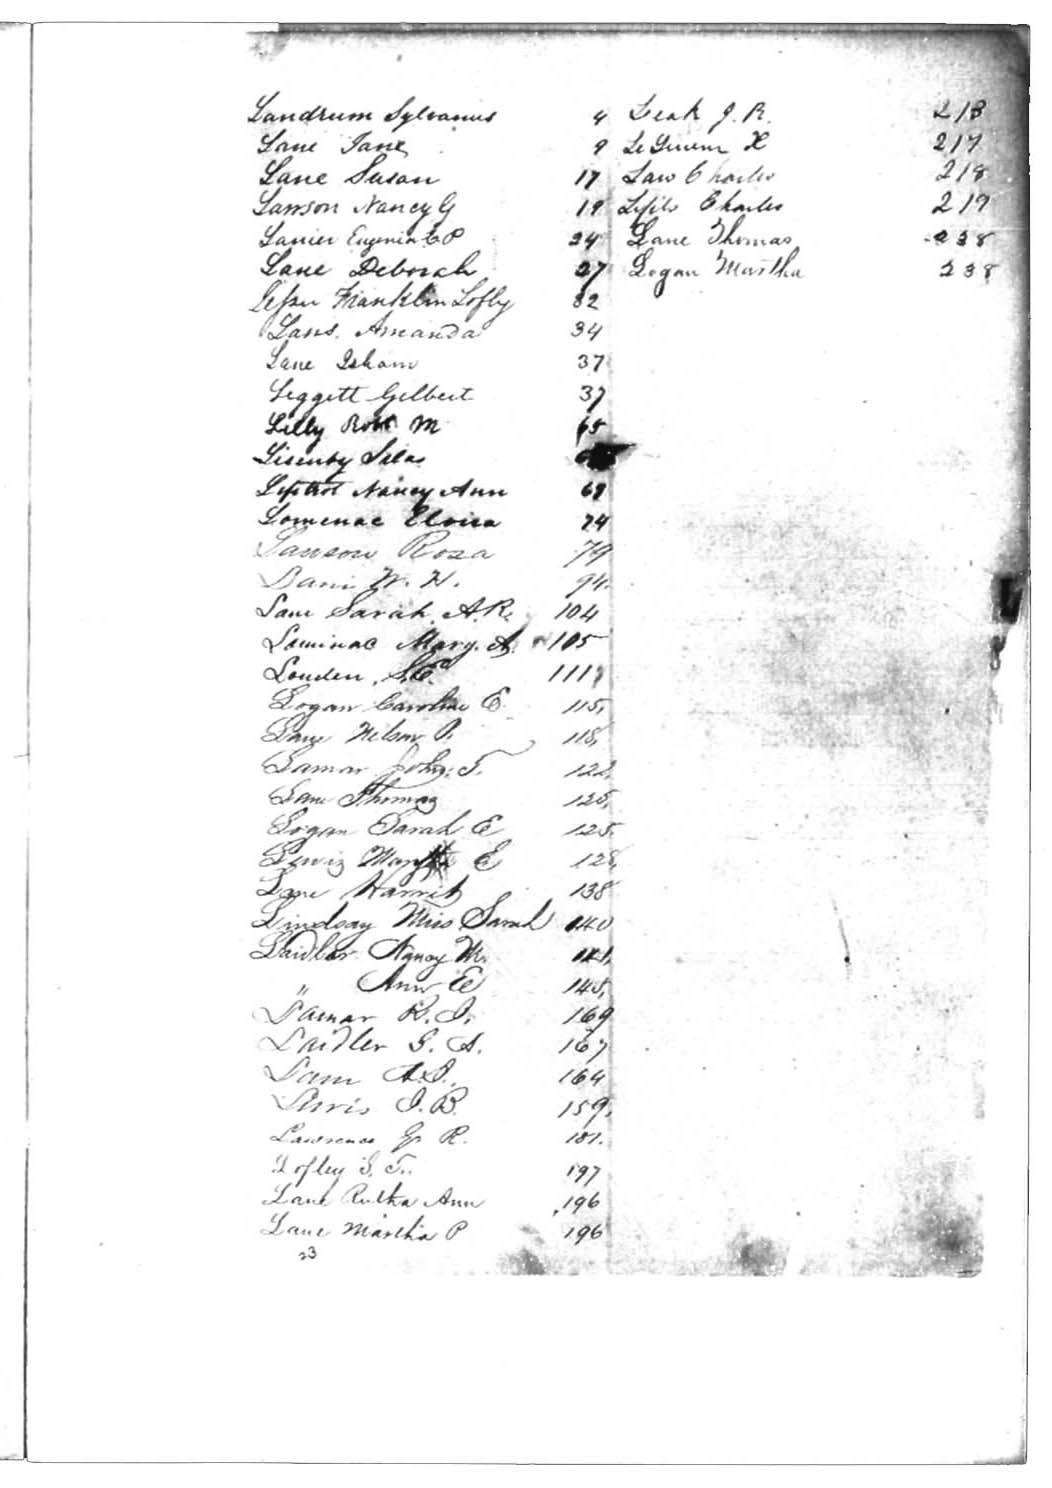 Landrum Sylvanus 4
Lane Jane 9
Lane Susan 17
Lawson Nancy G 19
Lanier Eugenia P 24
Lane Deborah 27
Franklin Lofly 32
Laws. Amanda 34
Lane Isham 37
Leggett Gilbert 37
Lilly Robt M 65
Lisenby Silas
Nancy Ann
Lomenac Elvira 74
Lawson Rosa 79
W. H. 94.
Lane Sarah. A. R. 104
Lominac Mary. A. 105
Louden, 111
Logan Caroline E. 115,
Lane Nelson P. 118,
Lamar John. T. 122,
Lane Thomas 125,
Logan Sarah E 125,
Lewis E 128,
Lane Harriet 138
Lindsay Miss Sarah 140
Laidler Nancy M. 141,
" Ann E 145,
Lamar B. J. 169
Laidler G. A. 167
A. J. 164
J. B. 159,
Lawrence R. 181.
Lofley S. T. 197
Lane Ann 196
Lane Martha P 196
23
Leak J. R. 213
217
Law Charles 218
Charles 219
Lane Thomas 238
Logan Martha 238